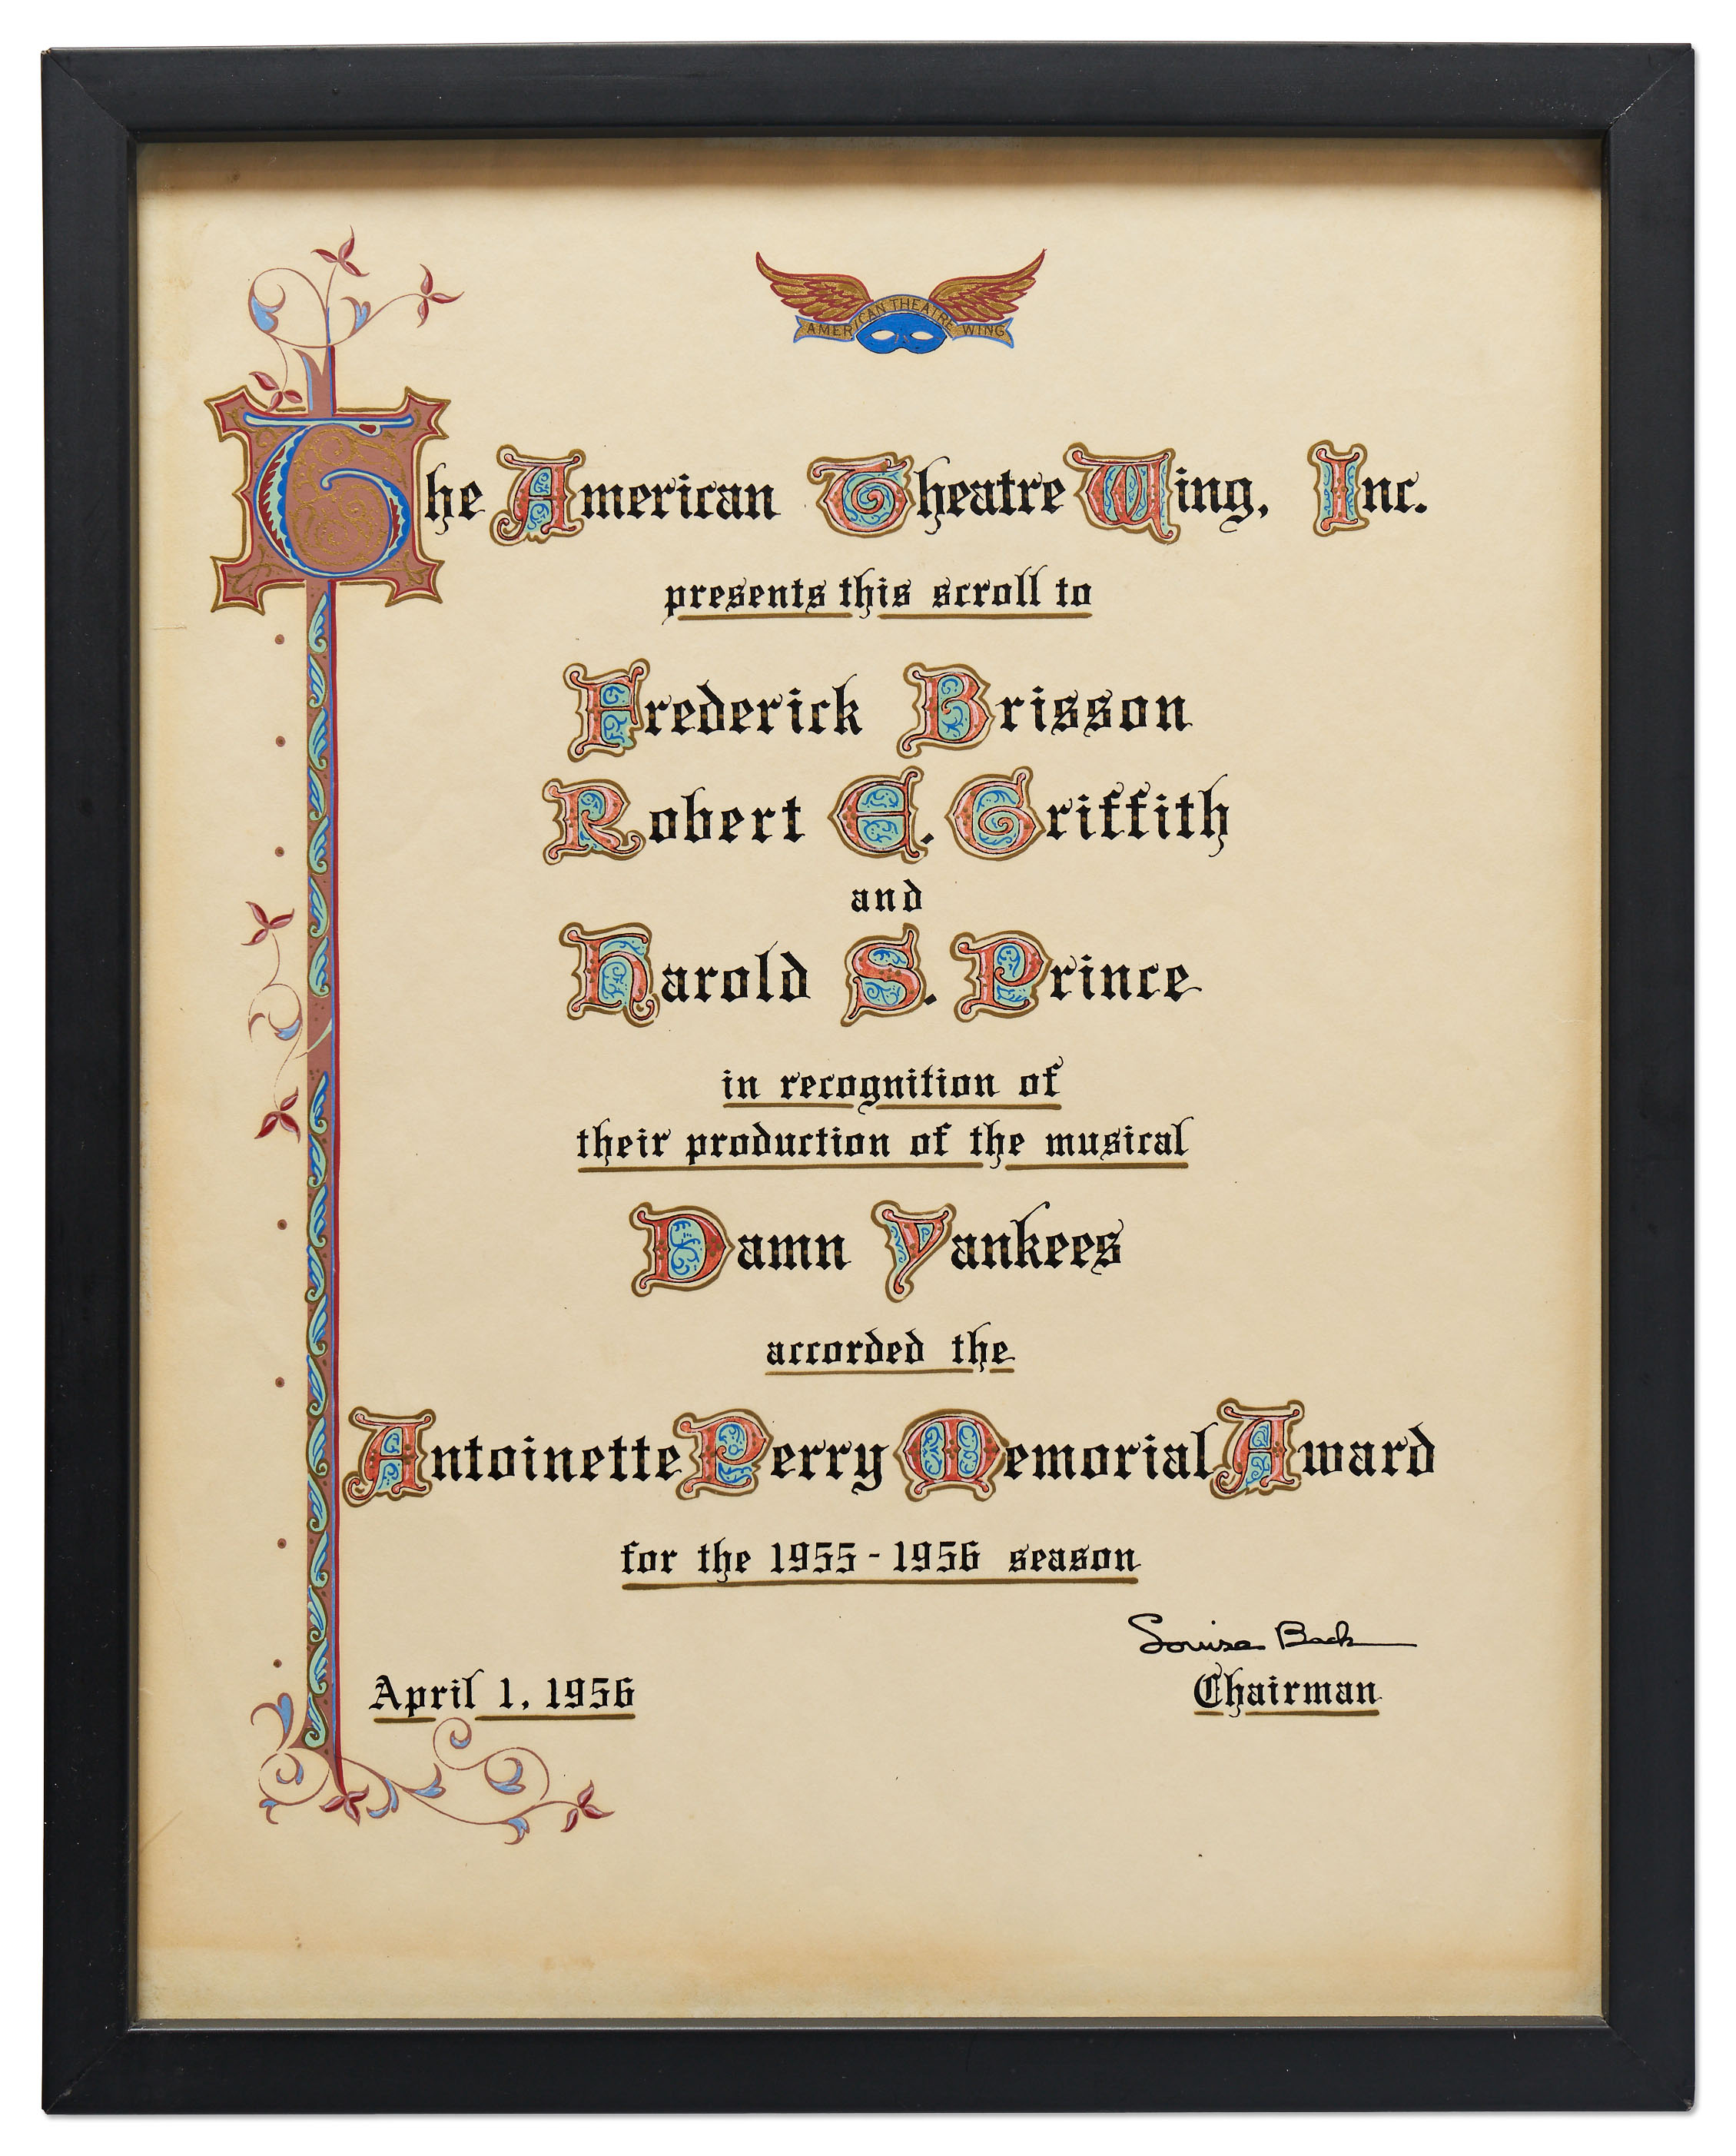 AMERICAN THEATRE WING
The American Theatre Wing, Inc.
presents this scroll to
Frederick Brisson
Robert E. Griffith
and
Harold S. Prince
in recognition of
their production of the musical
Damn Yankees
accorded the
Antoinette Perry Memorial Award
for the 1955-1956 season
Louise Beck
April 1, 1956 Chairman